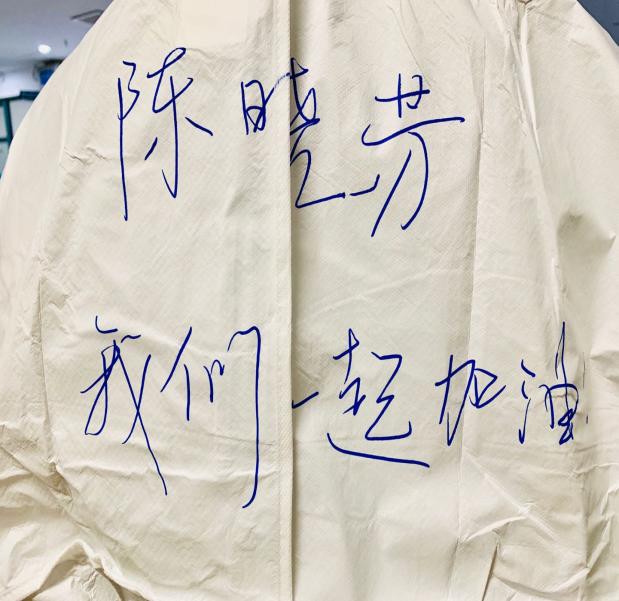 陈晓芳
我们一起加油